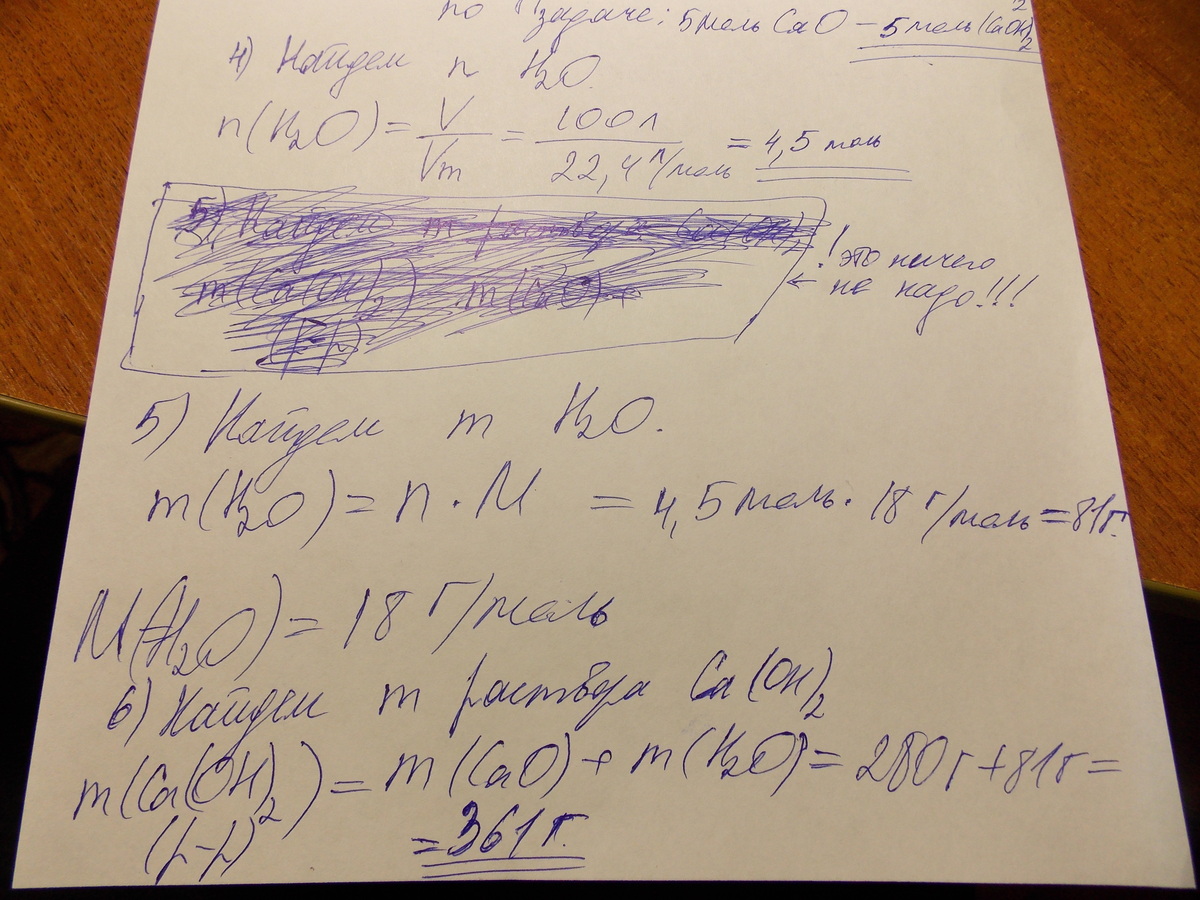 по задаче: 5 моль CaO – 5 моль Ca(OH)2
4) Найдем n H2O.
n(H2O) = V/Vm = 100л/22,4 л/моль = 4,5 моль
5) Найдем m раствора Ca(OH)2
! это ничего
m(Ca(OH)2) m(CaO)+
← не надо!!!
(р-р)
5) Найдем m H2O.
m(H2O) = n · M = 4,5 моль · 18 г/моль = 81г.
M(H2O) = 18 г/моль
6) Найдем m раствора Ca(OH)2
m(Ca(OH)2) = m(CaO) + m(H2O) = 280г + 81г =
(р-р) = 361 г.